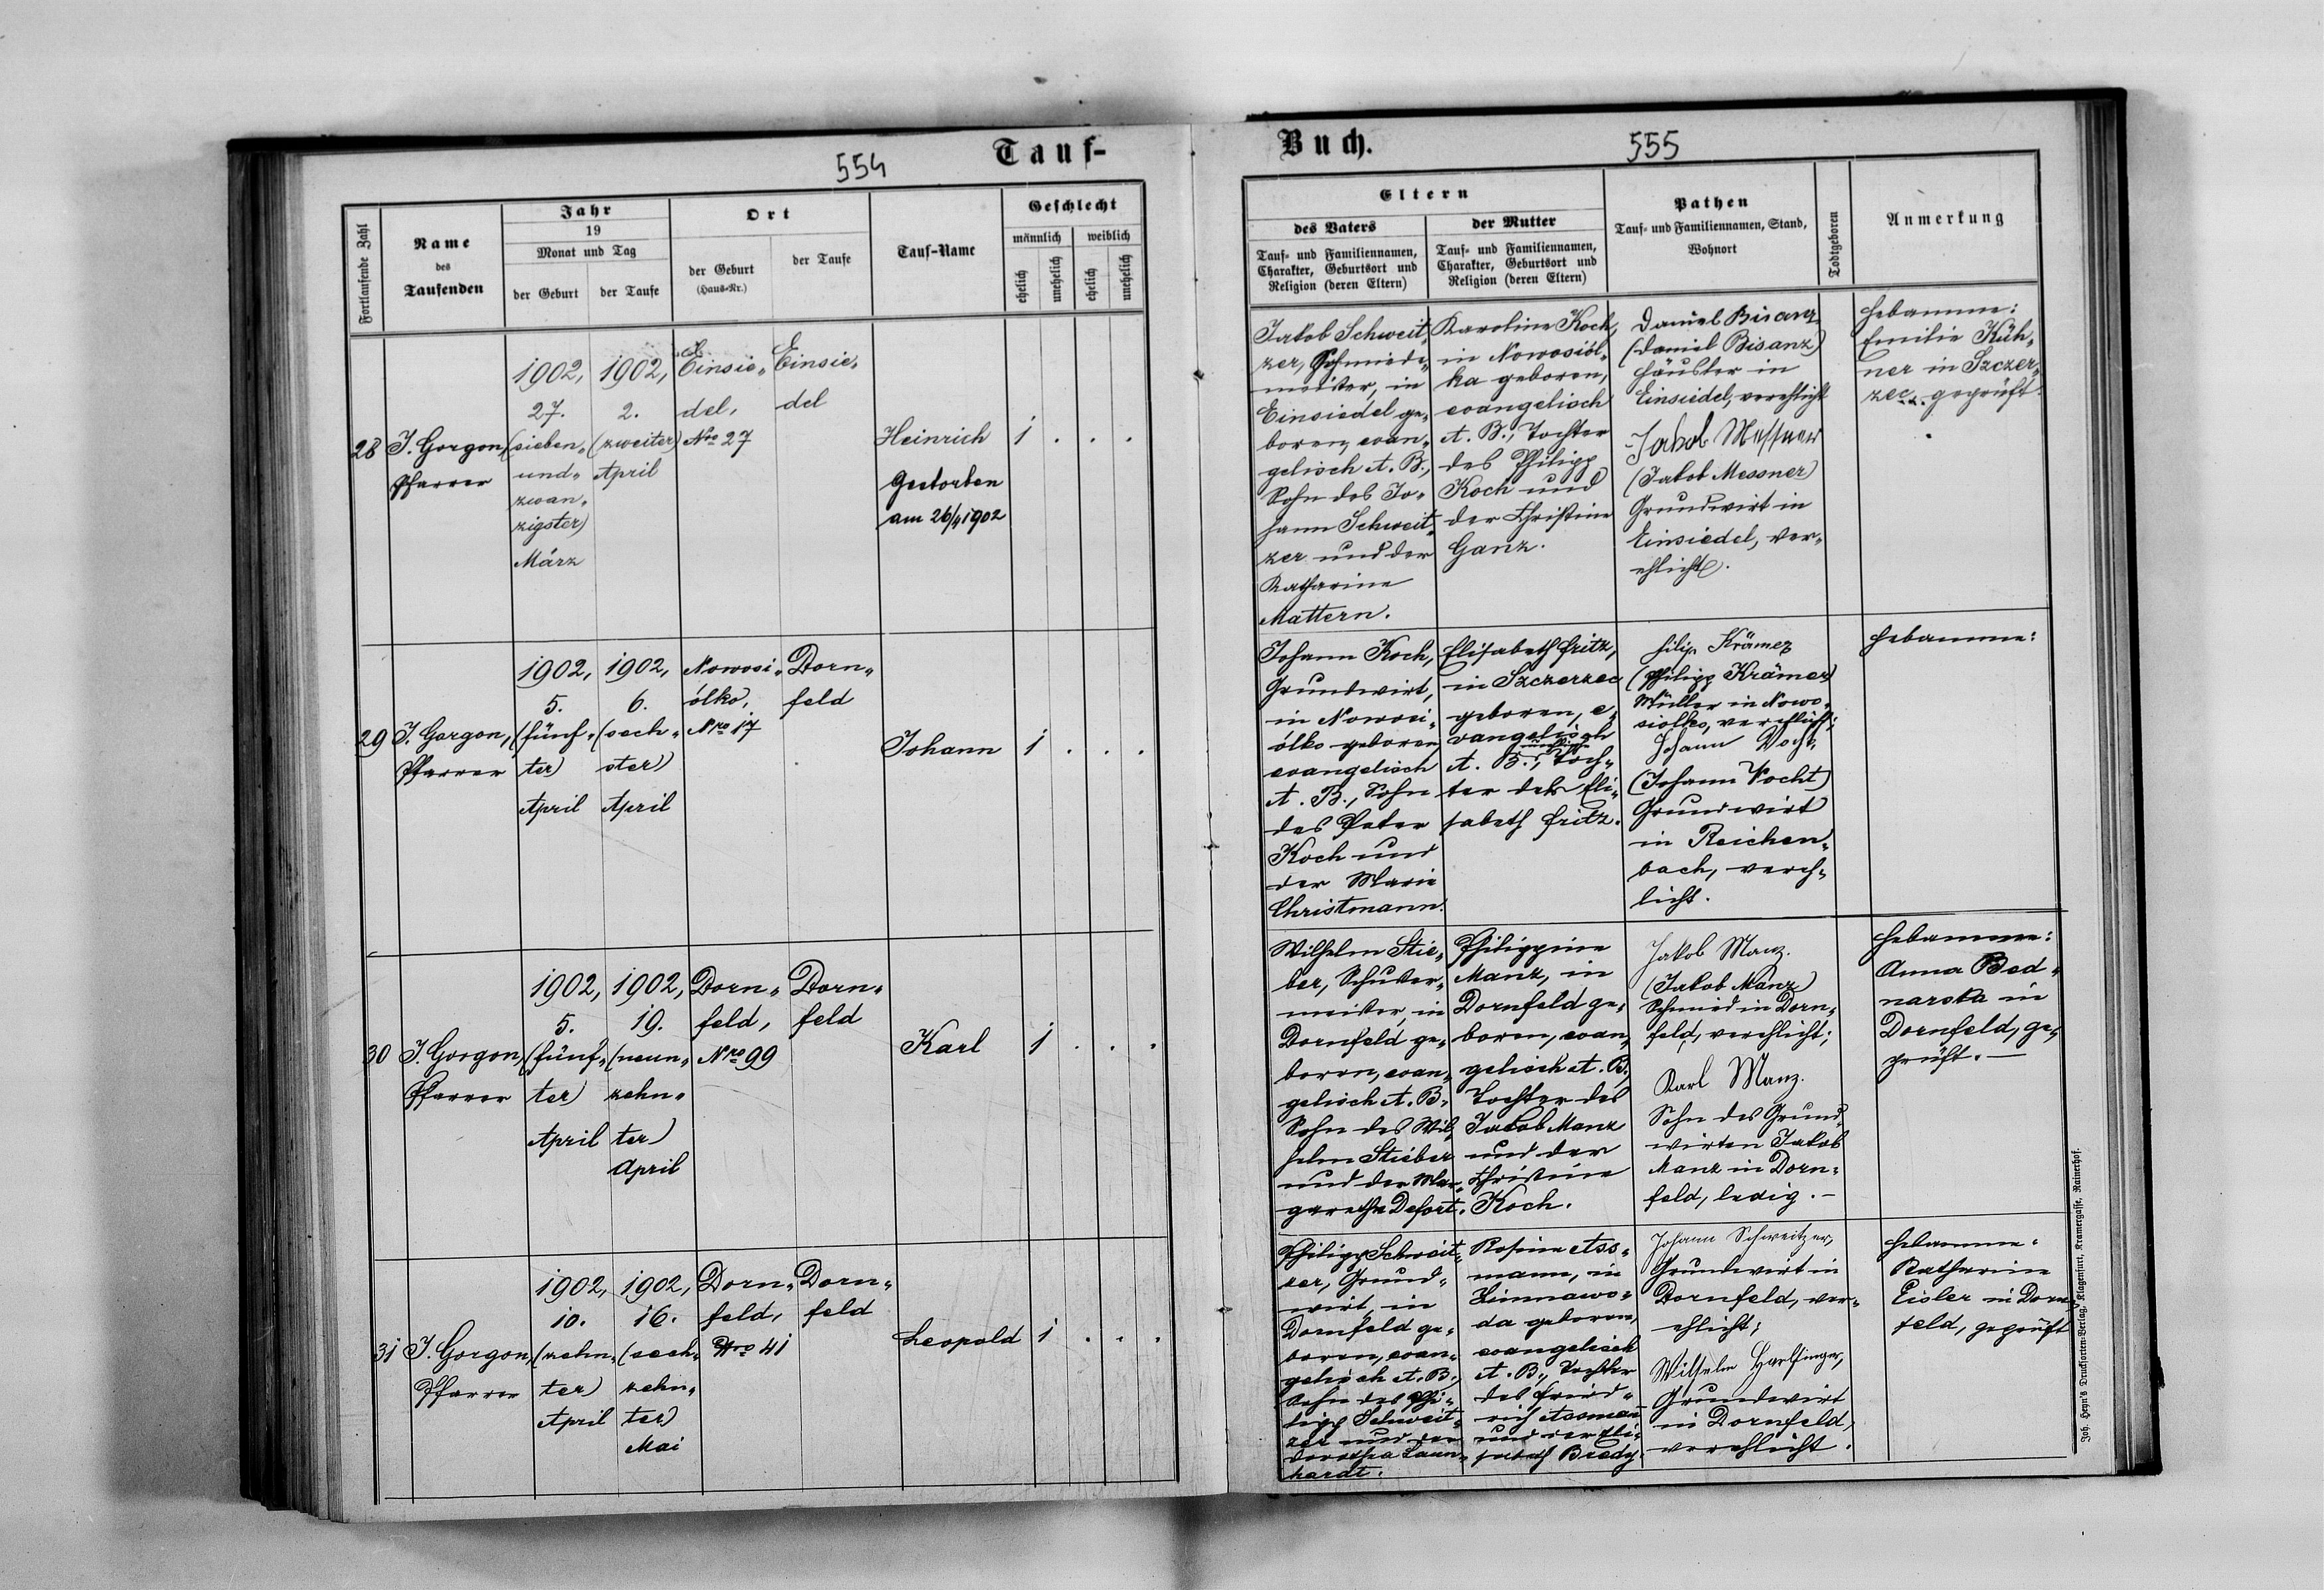 554
Tauf-
Fortlaufende Zahl
Name
des
Taufenden
Jahr
19
Monat und Tag
der Geburt
der Taufe
Ort
der Geburt
(Haus-Nr.)
der Taufe
Tauf-Name
Geschlecht
männlich
weiblich
ehelich
unehelich
ehelich
unehelich
28
J. Gorgon,
Pfarrer
1902,
27.
(sieben-
und-
zwan-
zigster)
März
1902,
2.
(zweiter)
April
Einsie-
del,
Nro 27
Einsie-
del
Heinrich
Gestorben
am 26/4 1902
1 . . .
29
J. Gorgon,
Pfarrer
1902,
5.
(fünf-
ter)
April
1902,
6.
(sech-
ster)
April
Nowosi-
ólko,
Nro 17
Dorn-
feld
Johann
1 . . .
30
J. Gorgon,
Pfarrer
1902,
5.
(fünf-
ter)
April
1902,
19.
(neun-
zehn-
ter)
April
Dorn-
feld,
Nro 99
Dorn-
feld
Karl
1 . . .
31
J. Gorgon,
Pfarrer
1902,
10.
(zehn-
ter)
April
1902,
16.
(sech-
zehn-
ter)
Mai
Dorn-
feld,
Nro 41
Dorn-
feld
Leopold
1 . . .
Buch.
555
Eltern
des Vaters
Tauf- und Familiennamen,
Charakter, Geburtsort und
Religion (deren Eltern)
der Mutter
Tauf- und Familiennamen,
Charakter, Geburtsort und
Religion (deren Eltern)
Pathen
Tauf- und Familiennamen, Stand,
Wohnort
Todtgeboren
Anmerkung
Jakob Schweit-
zer, Schmiede-
meister, in
Einsiedel ge-
boren, evan-
gelisch A. B.,
Sohn des Jo-
hann Schweit-
zer und der
Katharine
Mattern.
Karoline Koch,
in Nowosiól-
ka geboren,
evangelisch
A. B., Tochter
des Philipp
Koch und
der Christine
Ganz.
Daniel Bisanz
(Daniel Bisanz)
Häusler in
Einsiedel, verehlicht
Jakob Messner
(Jakob Messner)
Grundwirt in
Einsiedel, ver-
ehlicht.
Hebamme:
Emilie Küh-
ner in Szczer-
zec, geprüft.
Johann Koch,
Grundwirt,
in Nowosi-
ólko geboren
evangelisch
A. B., Sohn
des Peter
Koch und
der Marie
Christmann.
Elisabeth Fritz,
in Szczerzec
geboren, e-
vangelisch
A. B., Toch-
ter der Eli-
sabeth Fritz.
Filip Krämer
(Philipp Krämer)
Müller in Nowo-
siolko, verehlicht;
Johann Vocht
(Johann Vocht)
Grundwirt
in Reichen-
bach, vereh-
licht.
Hebamme:
Wilhelm Stie-
ber, Schuster-
meister, in
Dornfeld ge-
boren, evan-
gelisch A. B.
Sohn des Wil-
helm Stieber
und der Mar-
garethe Defort.
Philippine
Manz, in
Dornfeld ge-
boren, evan-
gelisch A. B.,
Tochter des
Jakob Manz
und der
Christine
Koch.
Jakob Manz.
(Jakob Manz)
Schmied in Dorn-
feld, verehlicht;
Karl Manz.
Sohn des Grund-
wirten Jakob
Manz in Dorn-
feld, ledig. –
Hebamme:
Anna Bed-
narska in
Dornfeld, ge-
prüft. –
Philipp Schweit-
zer, Grund-
wirt, in
Dornfeld ge-
boren, evan-
gelisch A. B.,
Sohn des Phi-
lipp Schweit-
zer und der
Dorothea Laun-
hardt.
Rosine Ass-
mann, in
Zimnawo-
da geboren,
evangelisch
A. B., Tochter
des Fried-
rich Assmann
und der Eli-
sabeth Bredy.
Johann Schweitzer,
Grundwirt in
Dornfeld, ver-
ehlicht;
Wilhelm Harlfinger,
Grundwirt
in Dornfeld,
verehlicht.
Hebamme.
Katharine
Eisler in Dorn-
feld, geprüft
Joh. Heyn's Drucksorten-Verlag, Klagenfurt, Kramergasse, Rainerhof.